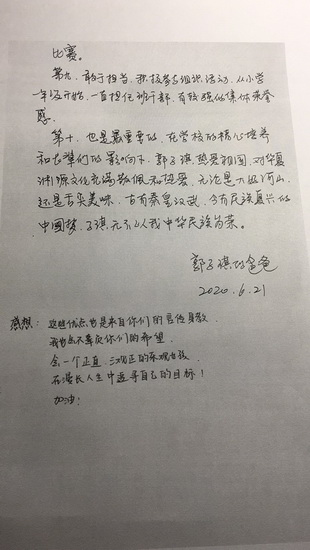 比赛。
第九，敢于担当，积极参与组织活动，从小学
一年级开始，一直担任班干部，有较强的集体荣誉
感。
第十，也是最重要的，在学校的精心培养
和长辈们的影响下，郭子琪热爱祖国，对华夏
渊源文化充满敬佩和热爱，无论是大好河山，
还是舌尖美味，古有秦皇汉武，今有民族复兴的
中国梦，子琪无不以我中华民族为荣。
郭子琪的爸爸
2020.6.21
感想：这些优点也是来自你们的言传身教，
我也不辜负你们的希望
会一个正直、三观正的乐观
在漫长人生中追寻自己的目标！
加油！